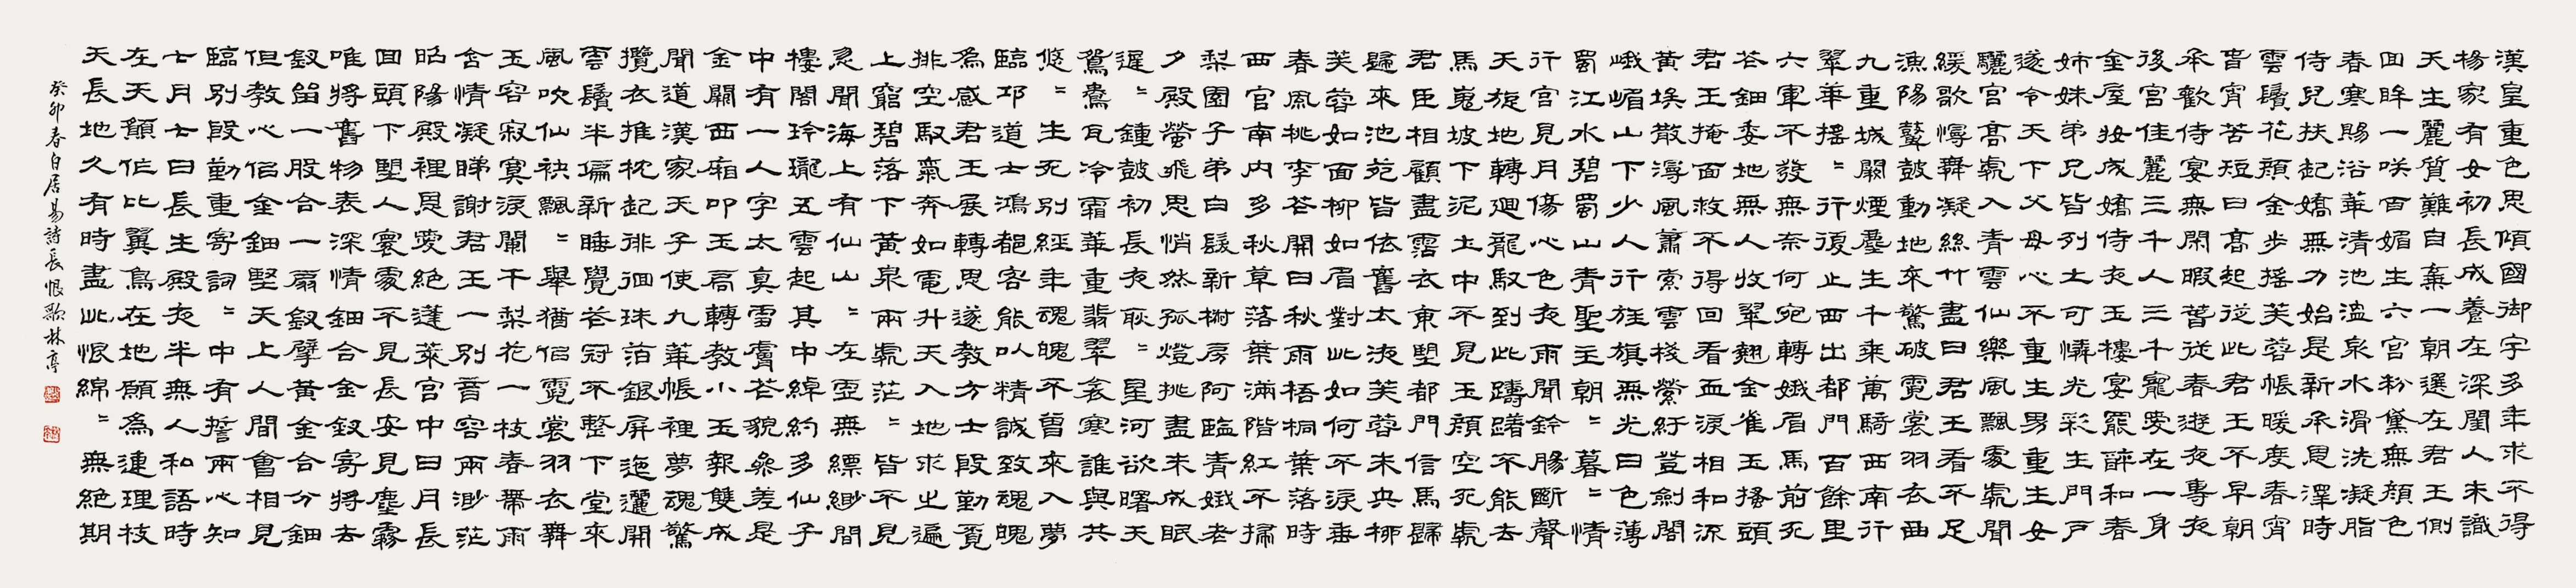 漢皇重色思傾國御宇多年求不得
楊家有女初長成養在深閨人未識
天生麗質難自棄一朝選在君王側
回眸一笑百媚生六宮粉黛無顏色
春寒賜浴華清池溫泉水滑洗凝脂
侍兒扶起嬌無力始是新承恩澤時
雲鬢花顏金步搖芙蓉帳暖度春宵
春宵苦短日高起從此君王不早朝
承歡侍宴無閑暇春從春遊夜專夜
後宮佳麗三千人三千寵愛在一身
金屋妝成嬌侍夜玉樓宴罷醉和春
姊妹弟兄皆列土可憐光彩生門戶
遂令天下父母心不重生男重生女
驪宮高處入青雲仙樂風飄處處聞
緩歌慢舞凝絲竹盡日君王看不足
漁陽鼙鼓動地來驚破霓裳羽衣曲
九重城闕煙塵生千乘萬騎西南行
翠華搖々行復止西出都門百餘里
六軍不發無奈何宛轉娥眉馬前死
花鈿委地無人收翠翹金雀玉搔頭
君王掩面救不得回看血淚相和流
黃埃散漫風蕭索雲棧縈紆登劍閣
峨嵋山下少人行旌旗無光日色薄
蜀江水碧蜀山青聖主朝々暮々情
行宮見月傷心色夜雨聞鈴腸斷聲
天旋地轉迴龍馭到此躊躇不能去
馬嵬坡下泥土中不見玉顏空死處
君臣相顧盡霑衣東望都門信馬歸
歸來池苑皆依舊太液芙蓉未央柳
芙蓉如面柳如眉對此如何不淚垂
春風桃李花開日秋雨梧桐葉落時
西宮南內多秋草落葉滿階紅不掃
梨園子弟白髮新椒房阿監青娥老
夕殿螢飛思悄然孤燈挑盡未成眠
遲々鐘鼓初長夜耿々星河欲曙天
鴛鴦瓦冷霜華重翡翠衾寒誰與共
悠々生死別經年魂魄不曾來入夢
臨邛道士鴻都客能以精誠致魂魄
為感君王展轉思遂教方士殷勤覓
排空馭氣奔如電升天入地求之遍
上窮碧落下黃泉兩處茫々皆不見
忽聞海上有仙山々在虛無縹緲間
樓閣玲瓏五雲起其中綽約多仙子
中有一人字太真雪膚花貌參差是
金闕西廂叩玉扃轉教小玉報雙成
聞道漢家天子使九華帳裡夢魂驚
攬衣推枕起徘徊珠箔銀屏迤邐開
雲鬢半偏新睡覺花冠不整下堂來
風吹仙袂飄々舉猶似霓裳羽衣舞
玉容寂寞淚闌干梨花一枝春帶雨
含情凝睇謝君王一別音容兩渺茫
昭陽殿裡恩愛絕蓬萊宮中日月長
回頭下望人寰處不見長安見塵霧
唯將舊物表深情鈿合金釵寄將去
釵留一股合一扇釵擘黃金合分鈿
但教心似金鈿堅天上人間會相見
臨別殷勤重寄詞々中有誓兩心知
七月七日長生殿夜半無人和語時
在天願作比翼鳥在地願為連理枝
天長地久有時盡此恨綿々無絕期
癸卯春白居易詩長恨歌林亭